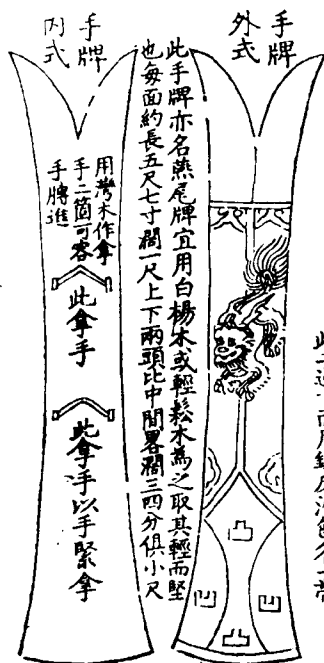 手牌
外式
凸
凹
凹
凸
此手牌亦名燕尾牌宜用白楊木或輕鬆木為之取其輕而堅
也每面約長五尺七寸濶一尺上下兩頭比中間畧濶三四分俱小尺
手牌
内式
用灣木作拿
手二箇可容
手進
此拿手
此拿手以手緊拿